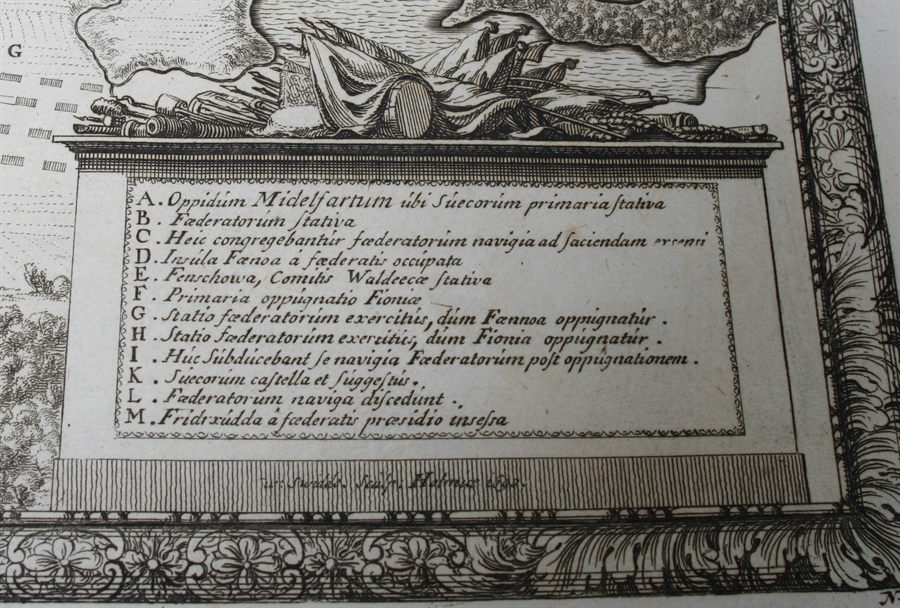 G
A. Oppidúm Midelfartum úbi Súecorúm primaria stativa
B. Fæderatorúm stativa
C. Heic congregebantúr fæderatorúm navigia ad faciendam
D. Insúla Fænoa á fæderatis occúpata
E. Fenschowa, Comitis Waldeecæ stativa
F. Primaria oppúgnatio Fioniæ
G. Statio fæderatorúm exercitús, dúm Fænnoa oppúgnatúr.
H. Statio fæderatorúm exercitús, dúm Fionia oppúgnatúr.
I. Húc Súbdúcebant se navigia Fæderatorúm post oppúgnationem.
K. Súecorúm castella et súggestús.
L. Fæderatorum naviga discedunt.
M. Fridrxúdda â fæderatis præsidio insessa
w. Swidde. Sculp. Holmiæ
N